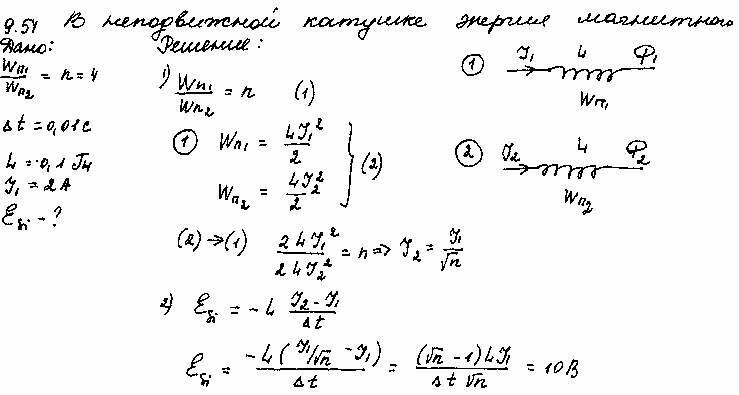 9.54 В неподвижной катушке энергия магнитного
Дано:
Wп1/Wп2 = n = 4
Δt = 0,01 с
L = 0,1 Гн
I₁ = 2 А
Ɛsi - ?
Решение:
1) Wп1/Wп2 = n (1)
① Wп1 = LI₁²/2
Wп2 = LI₂²/2 } (2)
(2)→(1) 2LI₁²/2LI₂² = n => I₂ = I₁/√n
2) Ɛsi = -L (I₂ - I₁)/Δt
Ɛsi = -L(I₁/√n - I₁)/Δt = (√n - 1)LI₁/Δt √n = 10 В
① I₁ L Φ₁
Wп1
② I₂ L Φ₂
Wп2